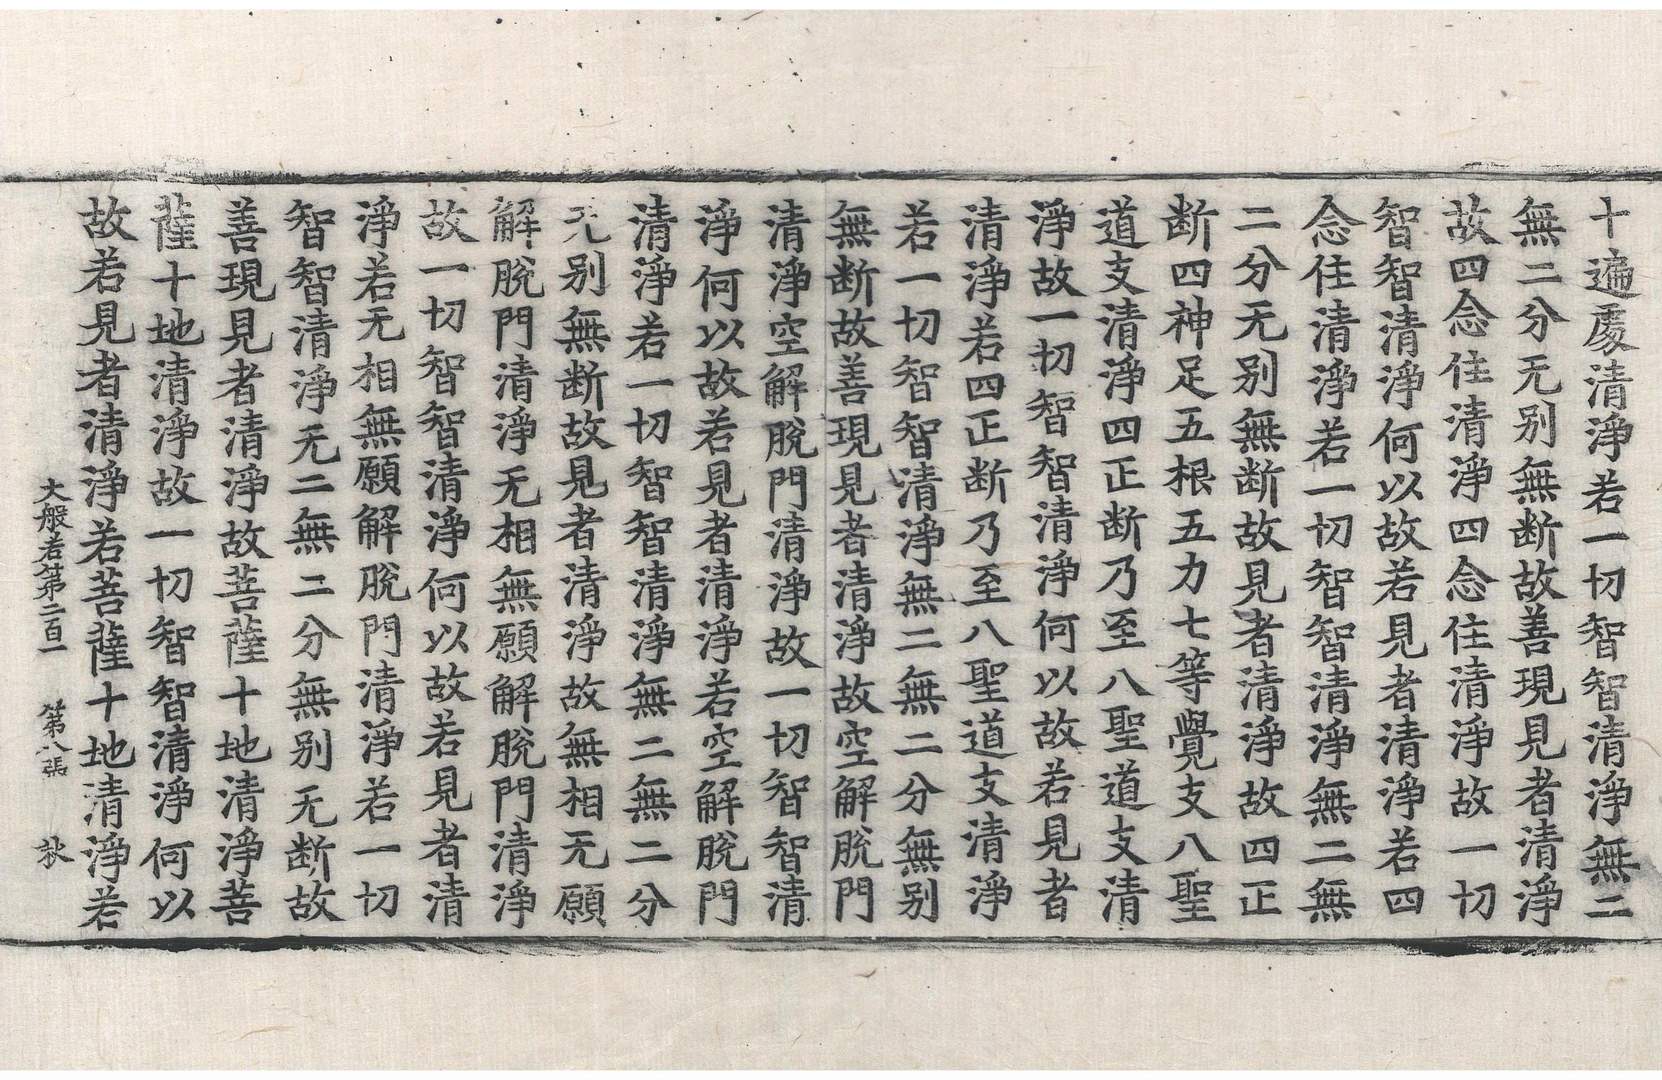 十遍處清淨若一切智智清淨無二
無二分无别無斷故善現見者清淨
故四念住清淨四念住清淨故一切
智智清淨何以故若見者清淨若四
念住清淨若一切智智清淨無二無
二分无别無斷故見者清淨故四正
断四神足五根五力七等覺支八聖
道支清淨四正断乃至八聖道支清
淨故一切智智清淨何以故若見者
清淨若四正断乃至八聖道支清淨
若一切智智清淨無二無二分無别
無断故善現見者清淨故空解脫門
清淨空解脫門清淨故一切智智清
淨何以故若見者清淨若空解脫門
清淨若一切智智清淨無二無二分
无别無断故見者清淨故無相无願
解脫門清淨无相無願解脫門清淨
故一切智智清淨何以故若見者清
淨若无相無願解脫門清淨若一切
智智清淨无二無二分無别无断故
善現見者清淨故菩薩十地清淨菩
薩十地清淨故一切智智清淨何以
故若見者清淨若菩薩十地清淨若
大般若第二百一 第八張 狄